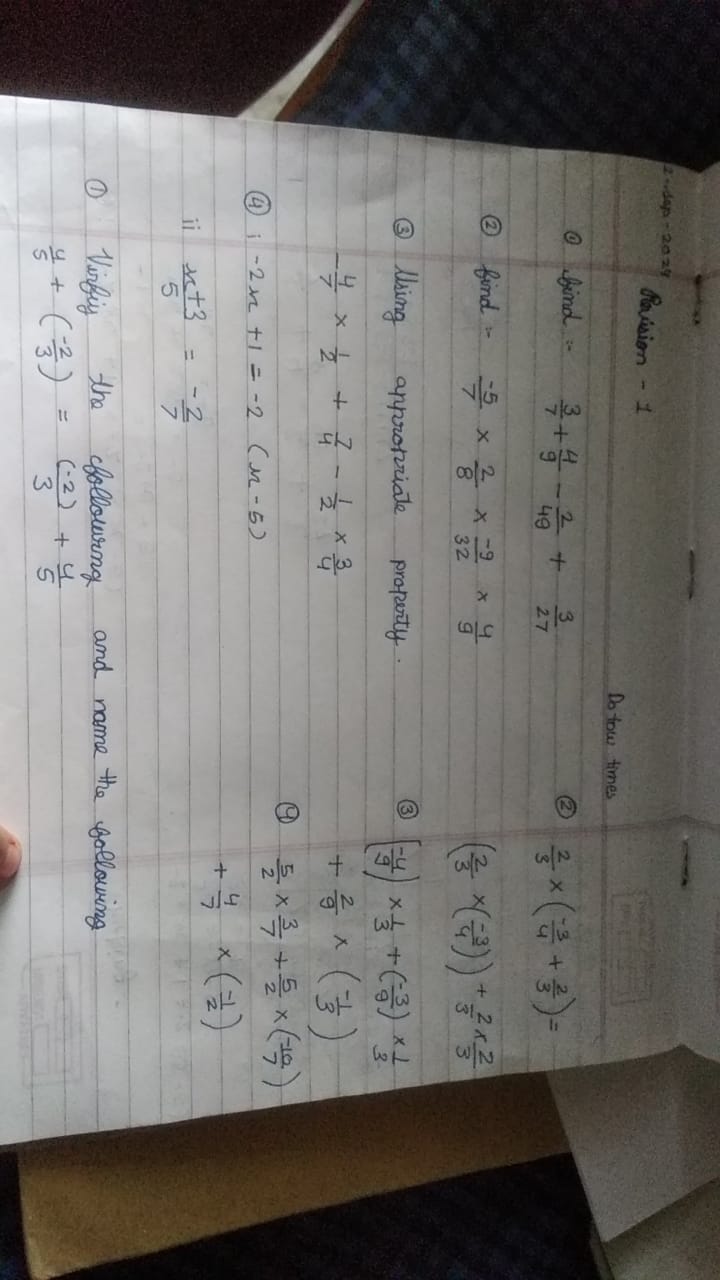 2-Sep-2024
Revision - 1
Do tow times
① find :- 3/7 + 4/9 - 2/49 + 3/27
② find :- -5/7 × 2/8 × -9/32 × 4/9
③ Using appropriate property.
-4/7 × 1/2 + 7/4 - 1/2 × 3/4
④ i -2x + 1 = -2 (x - 5)
ii x+3/5 = -2/7
① Virfiy the following and name the following
4/5 + (-2/3) = (-2)/3 + 4/5
② 2/3 × (-3/4 + 2/3) =
(2/3 × (-3/4)) + 2/3 × 2/3
③ (-4/9) × 1/3 + (-3/9) × 1/3
+ 2/9 × (-1/3)
④ 5/2 × 3/7 + 5/2 × (-10/7)
+ 4/7 × (-1/2)